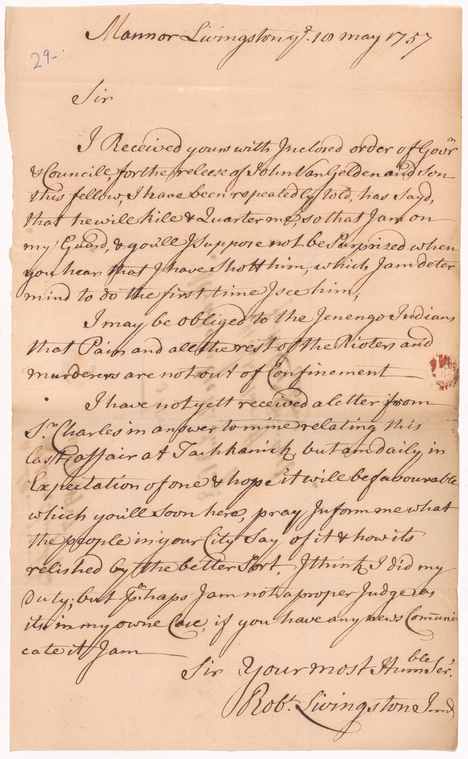 29-
Mannor Livingston ye. 18 may 1757
Sir
I Received yours with Inclosed order of Govrn
& Councill, for the release of John Van Gelden and Son
this fellow, I have been repeatedly told, has Said,
that he will kile & Quarter me, so that I am on
my Guard, & youll I suppose not be Surprized when
you hear that I have Shott him, which I am deter
mind to do the first time I see him,
I may be obliged to the Jenengo Indians
that Pain and all the rest of the Rioters and
murderers are not out of Confinement
I have not yett received a letter from
Sr. Charles in answer to mine relating this
last affair at Tachkanick, but am daily in
Expectation of one & hope it will be favourable
which you'll soon here, pray Inform me what
the people in your City Say of it & how its
relished by the better Sort, I think I did my
Duty, but Perhaps I am not a proper Judge as
its in my owne Case, if you have any news Comuni
cate it I am
Sir Your most Humble Ser.
Robt. Livingston Junr